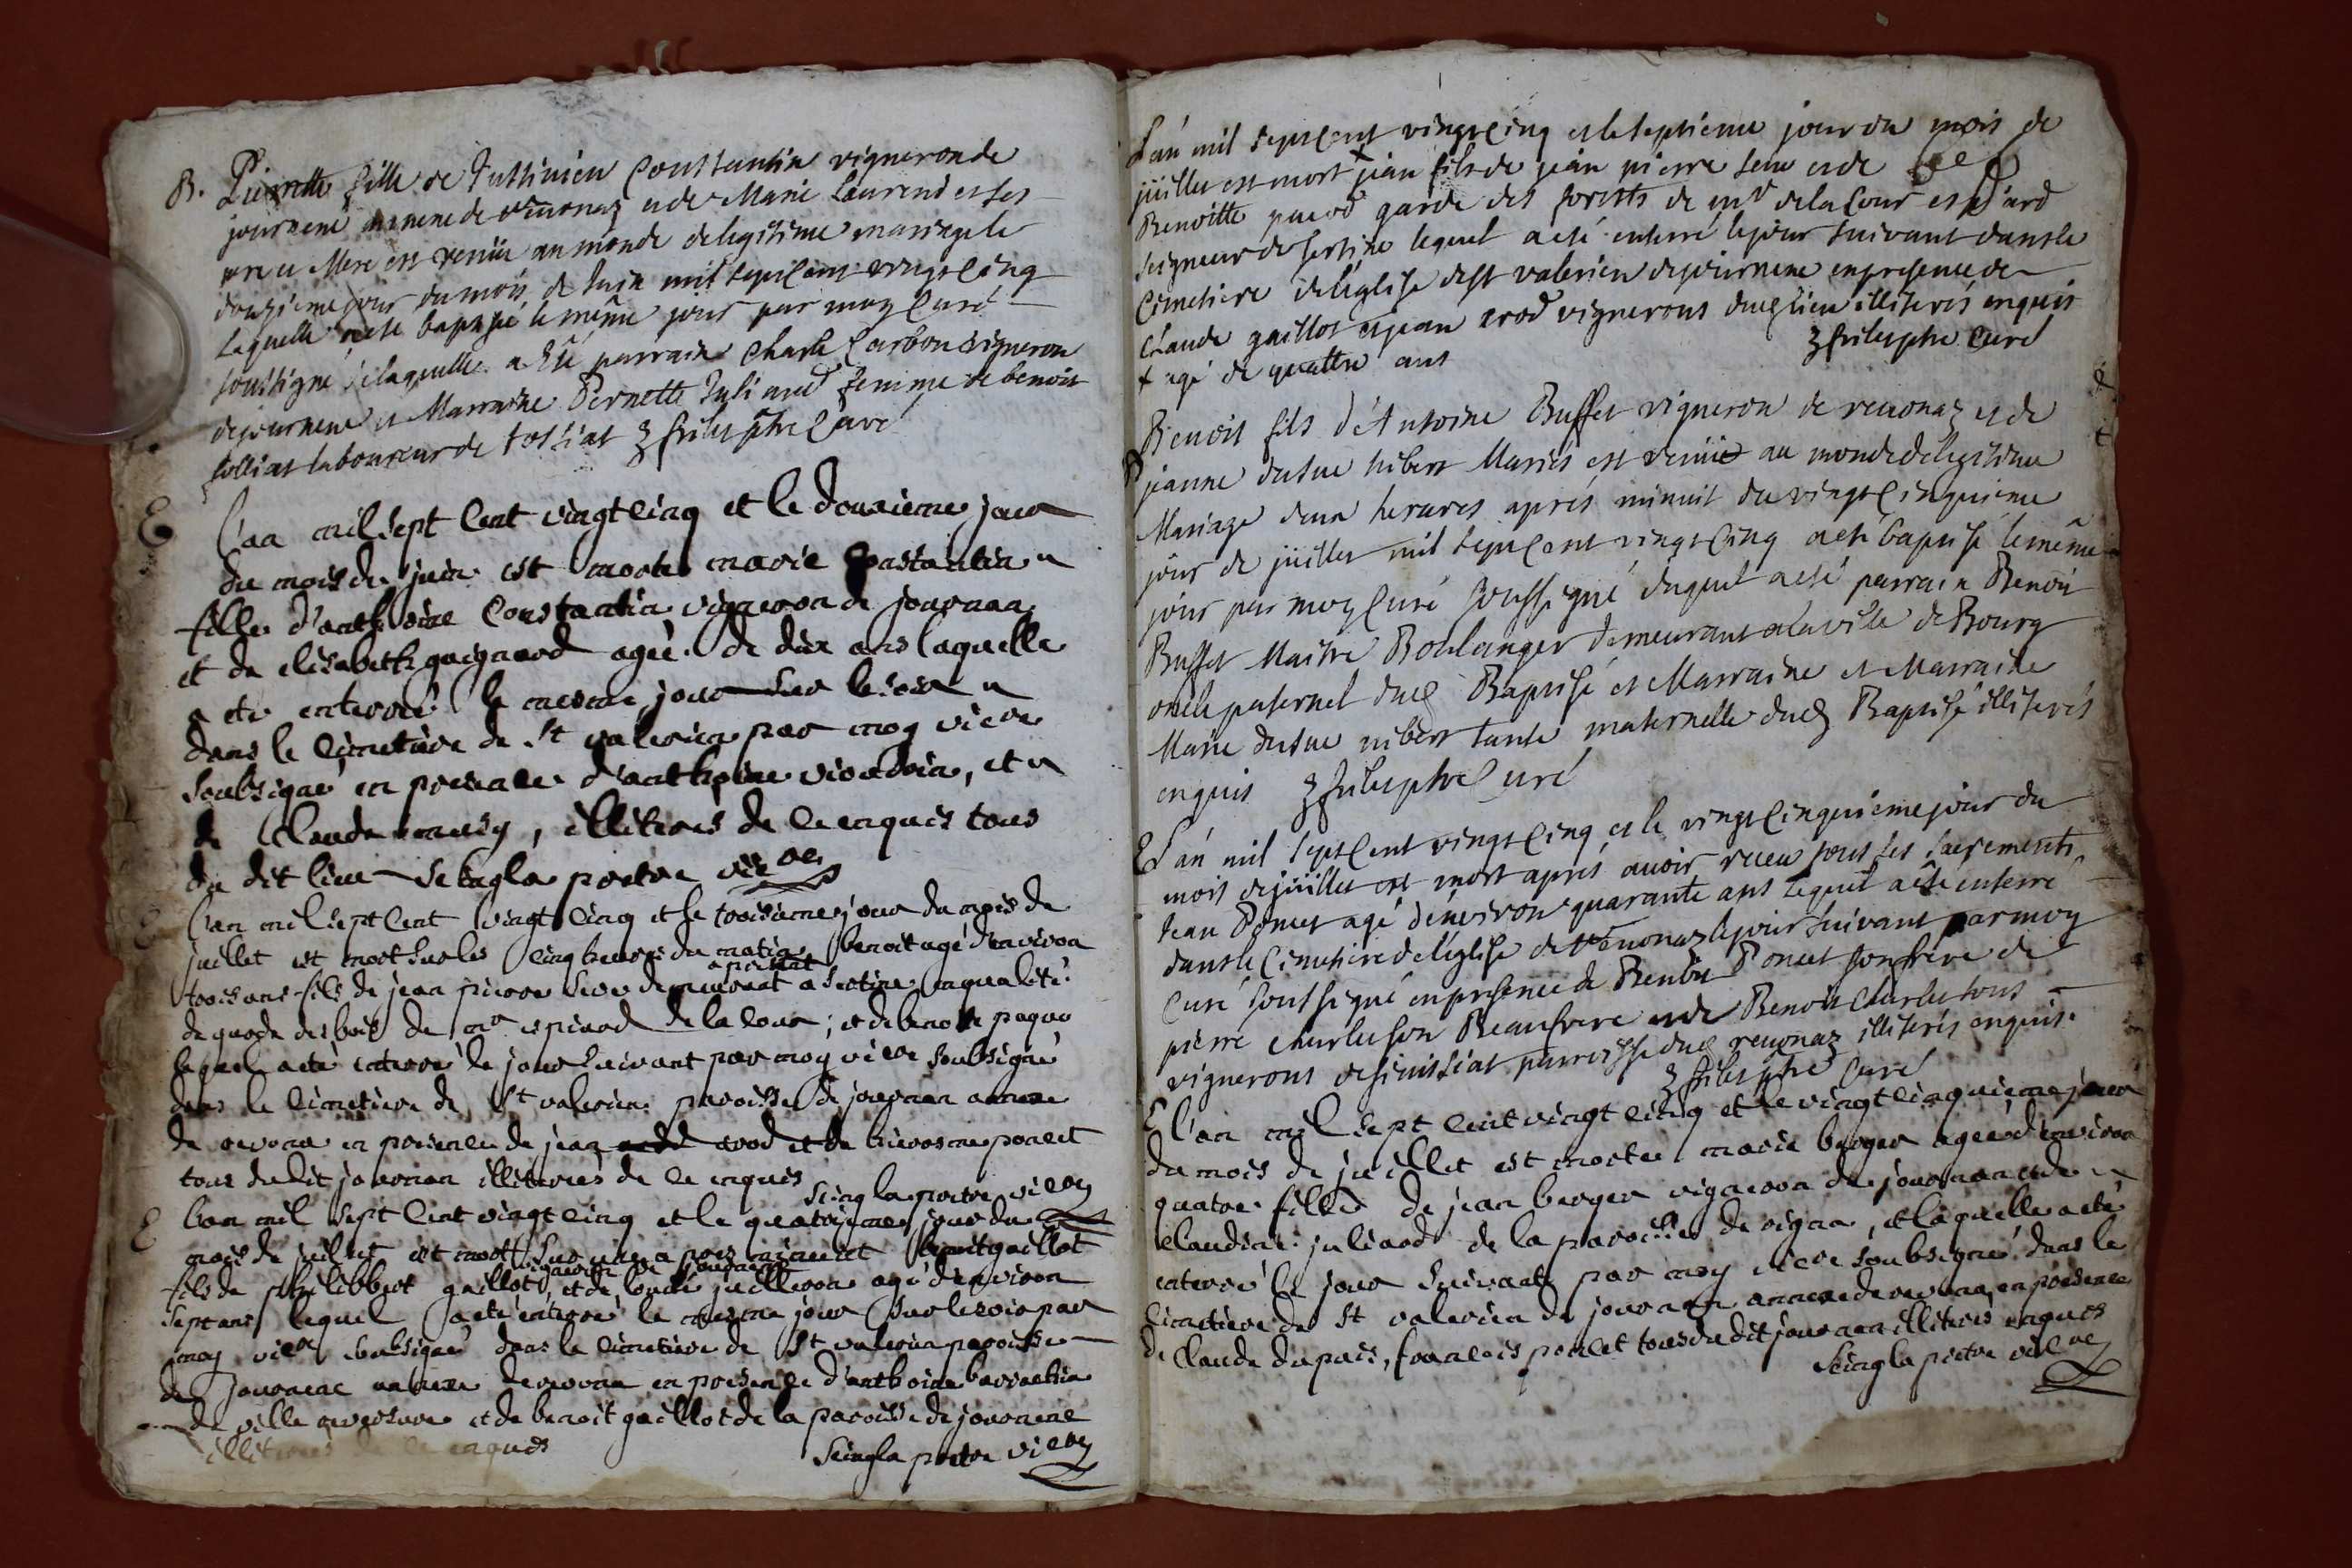 B. Pierrette fille de Justinien Constantin vigneron de
journene annexe de reuonaz et de Marie Laurend et ses
pere et Mere est venüe au monde de legitime mariage le
douzieme jour du mois de Juin mil sept cent vingt cinq
laquelle a esté baptisé le même jour par moy Curé
soussigné de laquelle a esté parrain Charle Carbon vigneron
de journene et Marraine Pernette Juliand femme de benoit
folliat laboureur de tossiat ptre Curé
E L'an mil sept cent vingt cinq et le douzieme jour
du mois de juin est morte marie Constantin
fille d'anthoine Constantin vigneron de journan
et de elisabeth guignard agée de dix ans laquelle
a eté enterré le mesme jour sur le soir
dans le cimetiere de St valerien par moy vicre
soubsigné en presence d'anthoine , et
de Claude musy, illiterés de ce enquis tous
du dit lieu Seingla pretre vicre
E l'an mil sept cent vingt cinq et le troisieme jour du mois de
juillet est mort sur les cinq heures du matin benoit agé d'environ
trois ans fils de jean pierre demeurant a present a Sertine en qualité
de garde des bois de mr espiard de la cour; et de benoite paquo
lequel a eté enterré le jour suivant par moy vicre soubsigné
dans le cimetiere de St valerien paroisse de journan annexe
de revona en presence de jean erod et de hierosme poncet
tous du dit journan illiterés de ce enquis
Seingla pretre vicre
E L'an mil sept cent vingt cinq et le quatrieme jour du
mois de juillet est mort sur une a pres minuit benoit guillot
vigneron de journan
fils de philibbert guillot, et de juilleron agé d'environ
sept ans lequel a eté enterré le mesme jour sur le soir par
moy vicre soubsigné dans le cimetiere de St valerien paroisse
de journene annexe de revona en presence d'anthoine
de ville reversure et de benoit guillot de la paroisse de journene
illiterés de ce enquis Seingla pretre vicre
L'an mil sept cent vingt cinq et le septieme jour du mois de
juillet est mort + jean fils de jean pierre et de
Benoitte garde des forests de mr de la Cour espiard
seigneur de Sertine lequel a esté enterré le jour suivant dans le
Cimetiere de l'eglise de st valerien de journene en presence de
Claude guillot et jean erod vignerons dudt lieu illiterés enquis
+ agé de quattre ans ptre Curé
B Benoit fils d'Antoine Buffet vigneron de reuonaz et de
jeanne dusue Mariés est venüe au monde de legitime
Mariage deux heures aprés minuit du vingt cinquieme
jour de juillet mil sept cent vingt cinq a esté baptisé le même
jour par moy Curé soussigné duquel a esté parrain Benoit
Buffet Maitre Boulanger demeurant a la ville de Bourg
oncle paternel dudt Baptisé et Marraine et Marraine
Marie dusue tante maternelle dudt Baptisé illiterés
enquis ptre Curé
E L'an mil sept cent vingt cinq et le vingt cinquieme jour du
mois de juillet est mort aprés avoir receu tous les sacrements
Jean Poncet agé d'environ quarante ans lequel a esté enterré
dans le Cimetiere de l'eglise de reuonaz le jour suivant par moy
Curé soussigné en presence de Benoit Poncet son frere de
pierre charle son Beaufrere et de Benoit Charle tous
vignerons de parroisse dudt reuonaz illiterés enquis
ptre Curé
E l'an mil sept cent vingt cinq et le vingt cinquieme jour
du mois de juillet est morte marie berger agée d'environ
quatre fille de jean berger vigneron de journan et de
claudine juliard de la paroisse de rigna, et laquelle a eté
enterré le jour suivant par moy vicre soubsigné dans le
cimetiere de St valerien de journan annexe de revona en presence
de Claude dupuis, francois poncet tous du dit journan illiterés enquis
Seingla pretre vicre